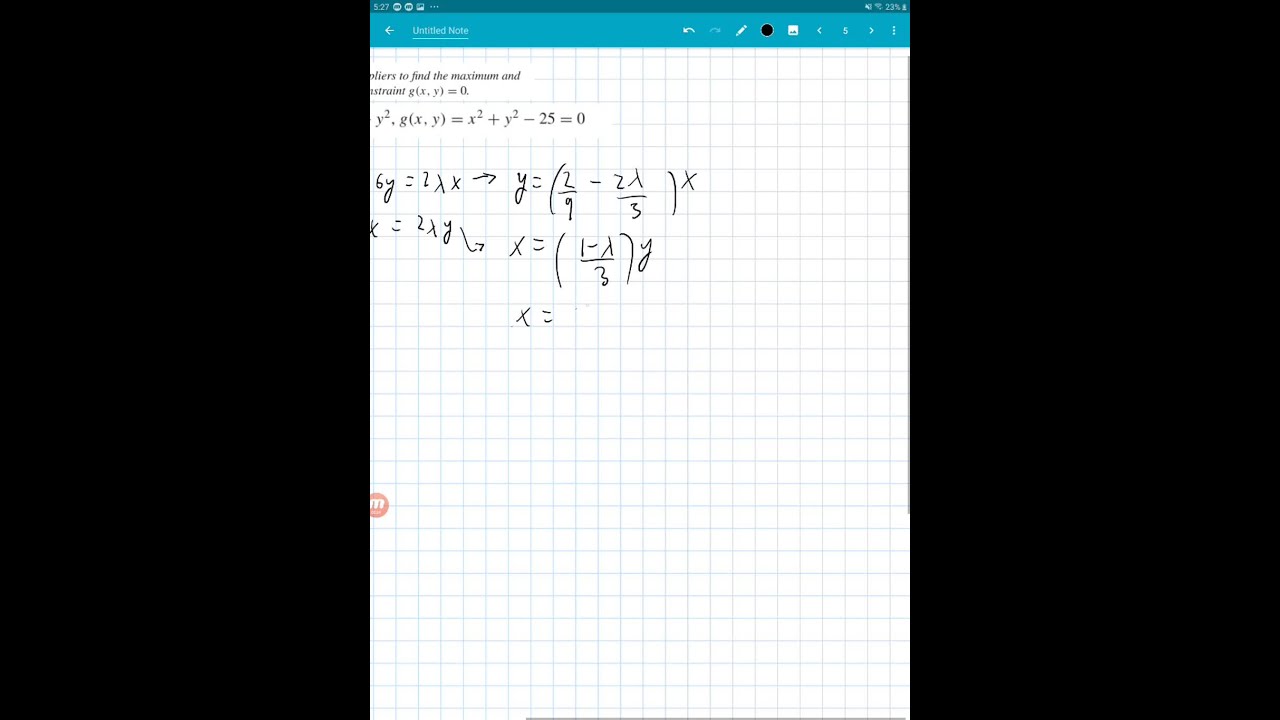 5:27 23%
Untitled Note 5
pliers to find the maximum and
nstraint g(x, y) = 0.
y², g(x, y) = x² + y² − 25 = 0
6y = 2λx → y = (2/9 − 2λ/3) x
x = 2λy → x = ((1−λ)/3) y
x =